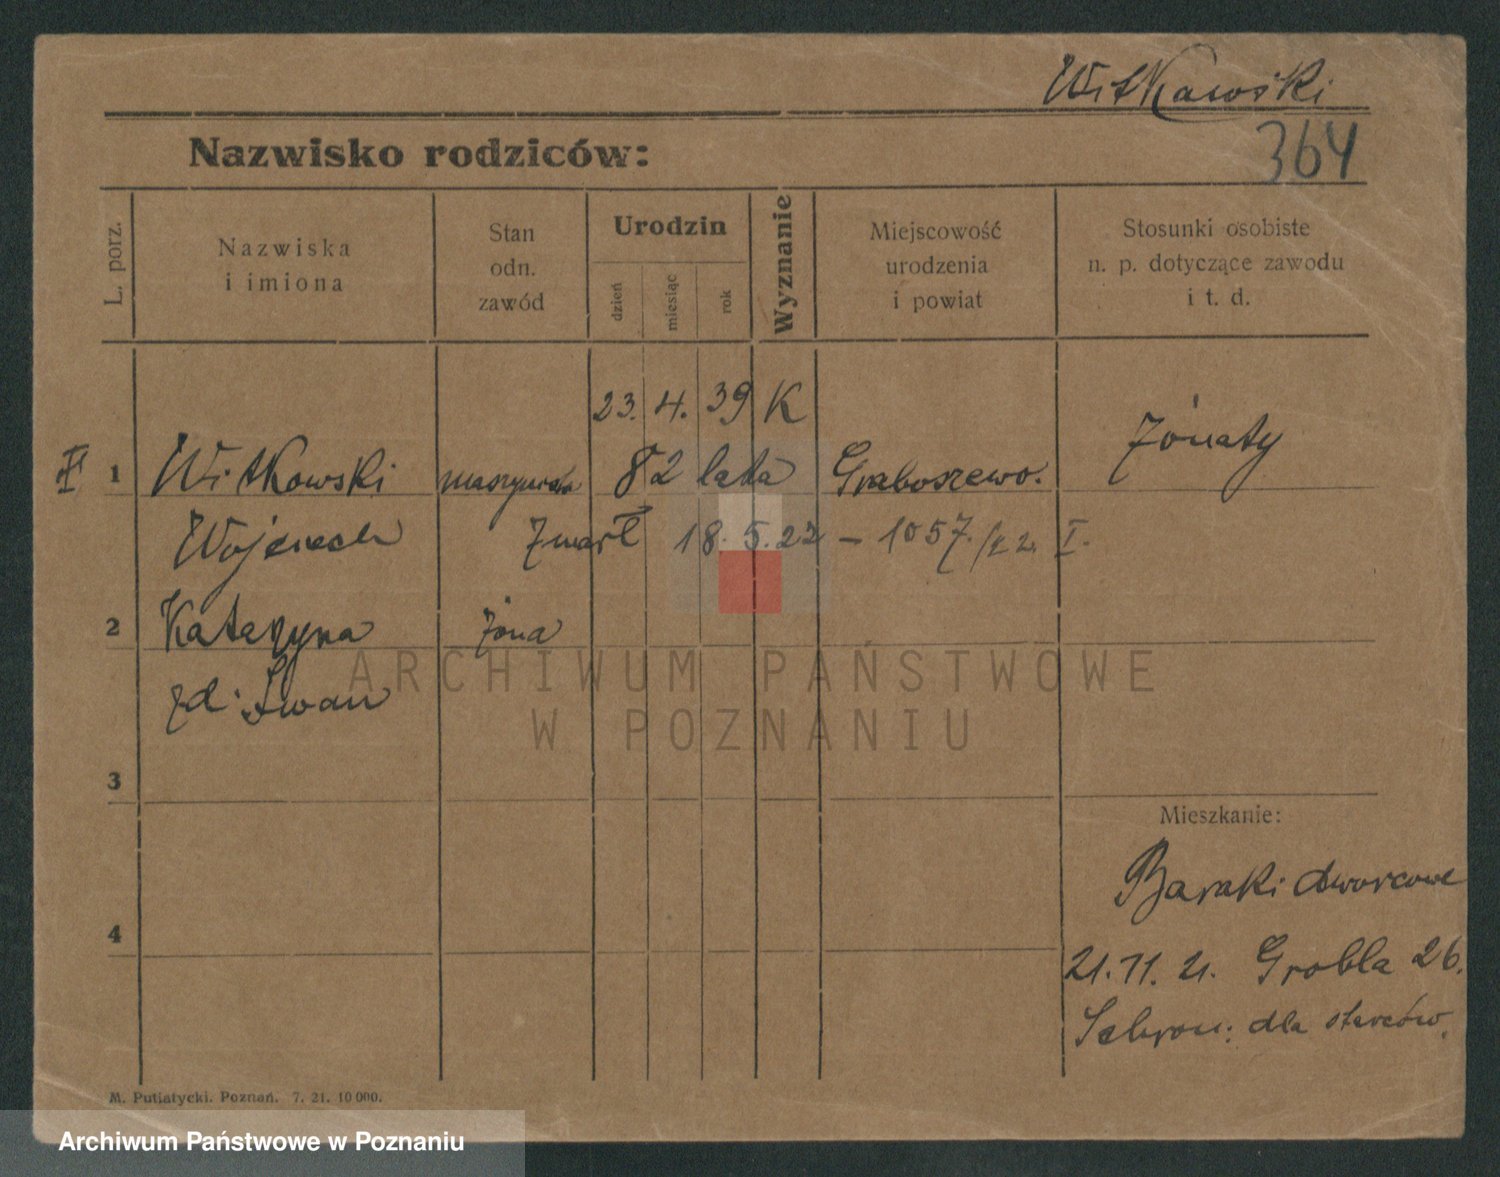 Witkowski
364
Nazwisko rodziców:
L. porz.
Nazwiska i imiona
Stan odn. zawód
Urodzin
dzień
miesiąc
rok
Wyznanie
Miejscowość urodzenia i powiat
Stosunki osobiste n. p. dotyczące zawodu i t. d.
23. 4. 39 K
Żonaty
II 1 Witkowski 82 lata Graboszewo.
Wojciech Zmarł 18. 5. 22 – 1057. I.
2 Katarzyna żona
zd.
3
4
Mieszkanie:
Baraki dworcowe
21. 11. 21. Grobla 26.
Schron. dla starców.
M. Putiatycki. Poznań. 7. 21. 10 000.
ARCHIWUM PAŃSTWOWE
W POZNANIU
Archiwum Państwowe w Poznaniu